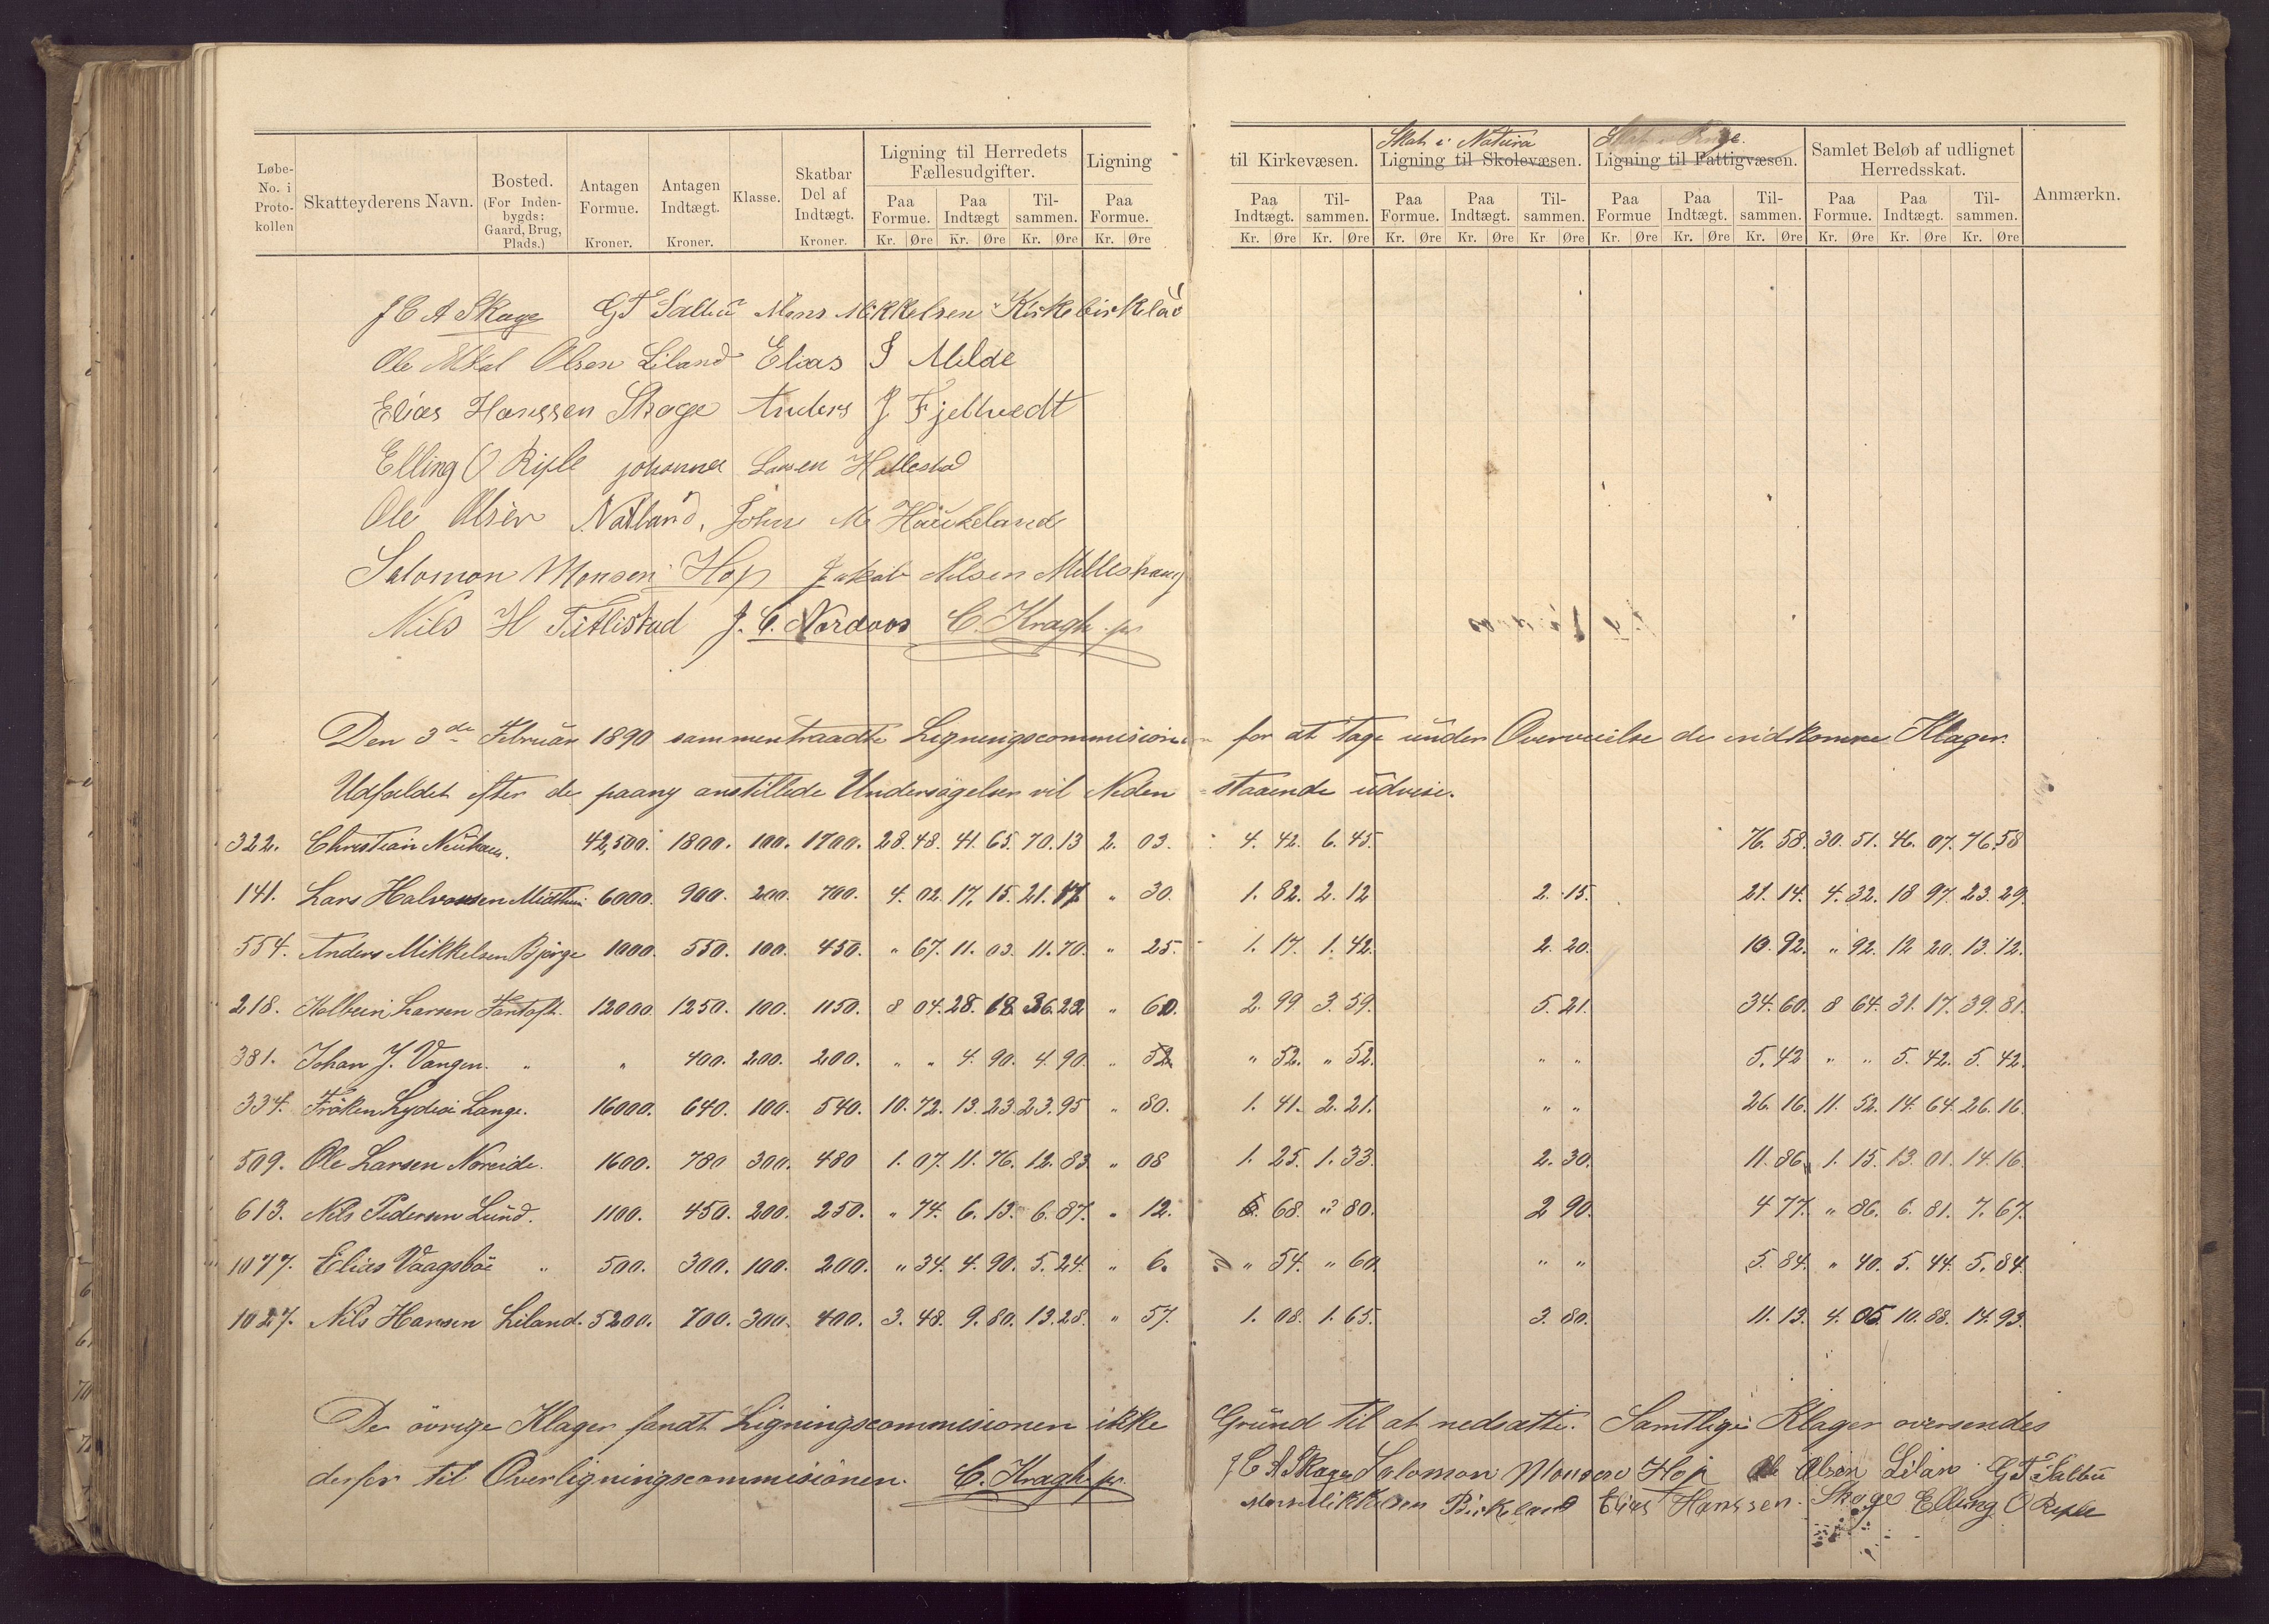 Løbe-No. i Protokollen | Skatteyderens Navn. | Bosted. (For Indenbygds: Gaard, Brug, Plads.) | Antagen Formue. Kroner. | Antagen Indtægt. Kroner. | Klasse. | Skatbar Del af Indtægt. Kroner. | Ligning til Herredets Fællesudgifter. | Ligning til Kirkevæsen. | Ligning til Skolevæsen. Skat i Natura | Ligning til Fattigvæsen. | Samlet Beløb af udlignet Herredsskat. | Anmærkn.
Paa Formue. | Paa Indtægt | Til-sammen. | Paa Formue. | Paa Indtægt. | Til-sammen. | Paa Formue. | Paa Indtægt. | Til-sammen. | Paa Formue | Paa Indtægt. | Til-sammen. | Paa Formue. | Paa Indtægt. | Til-sammen.
Kr. Øre Kr. Øre Kr. Øre Kr. Øre Kr. Øre Kr. Øre Kr. Øre Kr. Øre Kr Øre Kr. Øre Kr. Øre Kr. Øre Kr. Øre Kr. Øre Kr. Øre
J C A Skage G T Sælbu Mons Mikkelsen Kirkebirkeland
Ole Olsen Liland Elias J Milde
Elias Hanssen Skage Anders J Fjellvedt
Elling O Riple Johannes Larsen Hollestad
Ole Olsen Natland, John M Haukeland
Salomon Monsen Hop Jakob Nilsen Milleshaug
Nils H Titlestad J. C. Nordaas C. Kragh
Den 3de Februar 1890 sammentraadte Ligningscommisionen for at tage under Overveielse de indkomne Klager.
Udfaldet efter de paany anstillede Undersøgelser vil Neden=staaende udvise.
322. Christian Neuhaus. 42,500. 1800. 100. 1700. 28. 48. 41. 65. 70. 13 2. 03. 4. 42. 6. 45. 76. 58. 30. 51. 46. 07. 76. 58
141. Lars Halvorsen Midthun 6000. 900. 200. 700. 4. 02. 17. 15. 21. 17 " 30. 1. 82. 2. 12 2. 15. 21. 14. 4. 32. 18 97. 23. 29.
554. Anders Mikkelsen Bjørge 1000. 550. 100. 450. " 67. 11. 03. 11. 70. " 25. 1. 17. 1. 42. 2. 20. 10. 92. " 92. 12 20. 13. 12.
218. Kolbein Larsen Fantoft. 12000. 1250. 100. 1150. 8 04. 28. 18. 36. 22 " 60. 2. 99 3. 59. 5. 21. 34. 60. 8 64. 31. 17. 39. 81.
381. Johan J. Vangen. " " 400. 200. 200. " " 4. 90. 4. 90. " 52 " 52. " 52. " " 5. 42 " " 5. 42. 5. 42.
334. Frøken Lydia Lange. 16000. 640. 100. 540. 10. 72. 13. 23. 23. 95 " 80. 1. 41. 2. 21. " " 26. 16. 11. 52. 14. 64. 26. 16.
509. Ole Larsen Noreide. 1600. 780 300. 480 1. 07. 11. 76. 12. 83 " 08 1. 25. 1. 33. 2. 30. 11. 86. 1. 15. 13. 01. 14. 16.
613. Nils Pedersen Lund. 1100. 450. 200. 250. " 74. 6. 13. 6. 87. " 12. 68. " 80. 2 90. 4 77. " 86. 6. 81. 7. 67.
1077. Elias Vaagsbøe " 500. 300. 100. 200. " 34. 4. 90. 5. 24. " 6. " 54. " 60. " " 5. 84. " 40. 5. 44. 5. 84.
1027. Nils Hansen Liland. 5200. 700. 300. 400. 3. 48. 9. 80. 13. 28. " 57. 1. 08. 1. 65. 3. 80. 11. 13. 4. 05. 10. 88. 14. 93.
De øvrige Klager fandt Ligningscommisionen ikke Grund til at nedsætte. Samtlige Klager oversendes
derfor til Overligningscommisionen. C. Kragh J C A Skage Salomon Monsen Hop Ole Olsen Liland G T Sælbu
Mons Mikkelsen Birkeland Elias Hanssen Skage Elling O Riple